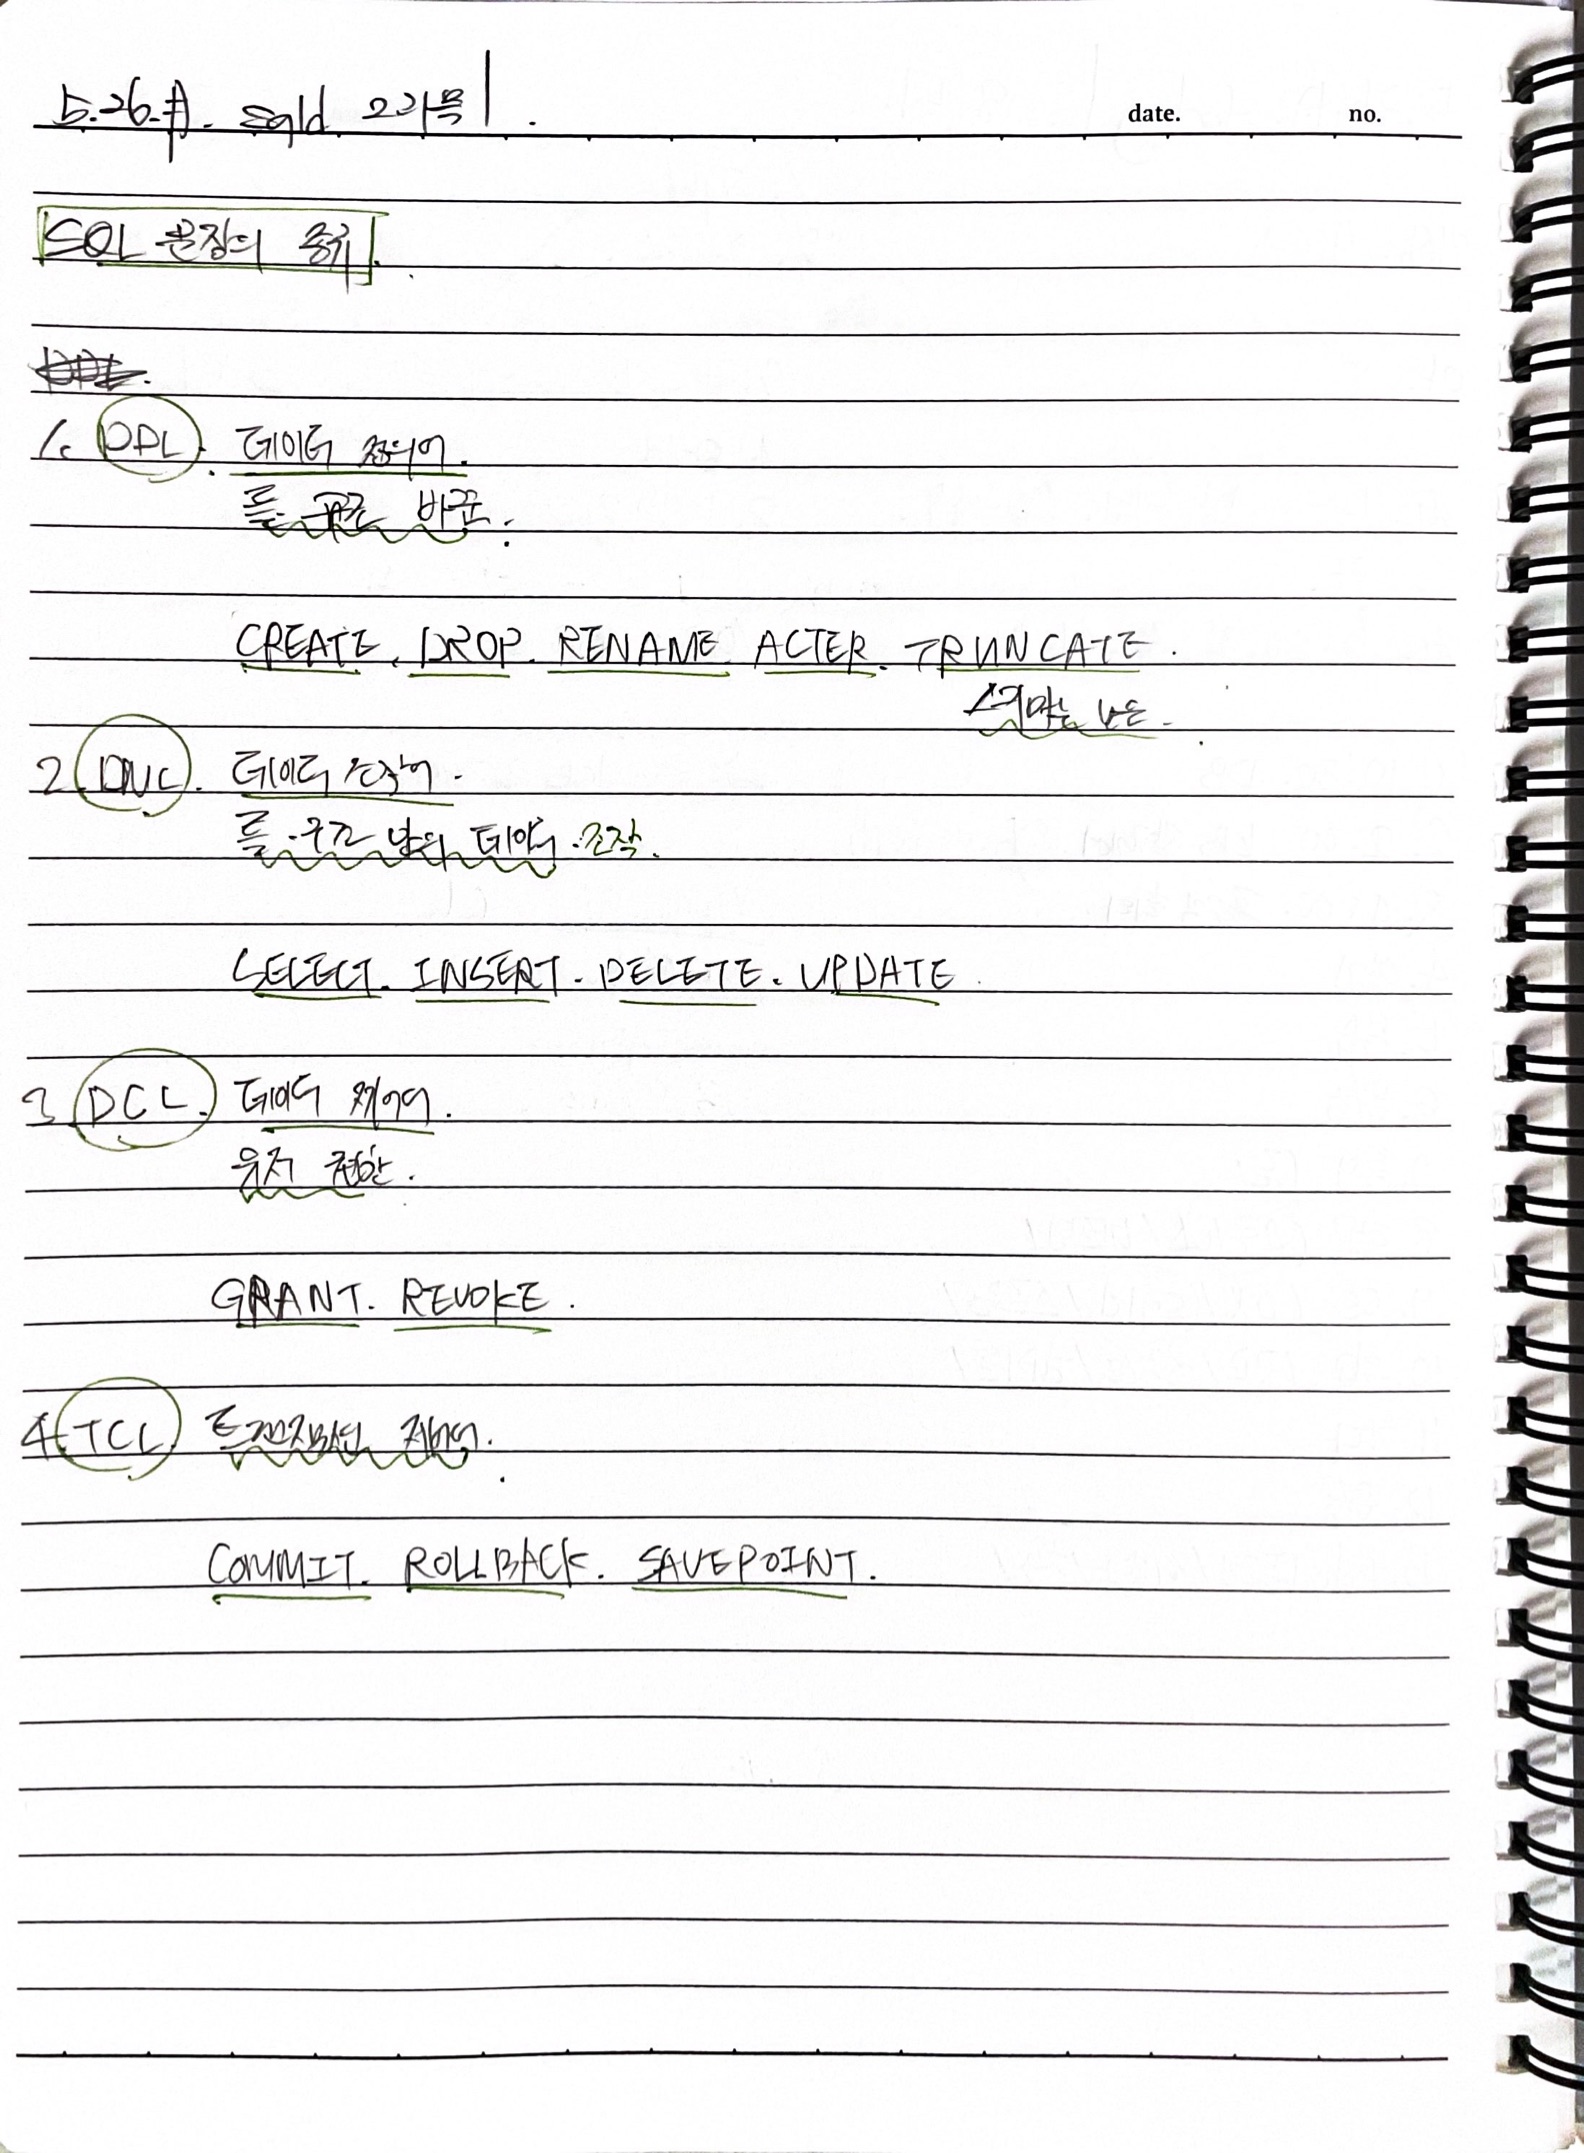 5.26.月. sqld 2과목
date. no.
SQL 문장의 종류.
1. DDL. 데이터 정의어.
틀. 구조 바꾼.
CREATE. DROP. RENAME. ALTER. TRUNCATE.
스키마는 남음.
2. DML. 데이터 조작어.
틀. 구조 남의 데이터 조작.
SELECT. INSERT. DELETE. UPDATE.
3 DCL. 데이터 제어어.
유저 권한.
GRANT. REVOKE.
4. TCL. 트랜잭션 제어어.
COMMIT. ROLLBACK. SAVEPOINT.